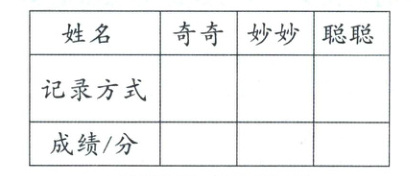 姓名 奇奇 妙妙 聪聪
记录方式
成绩/分